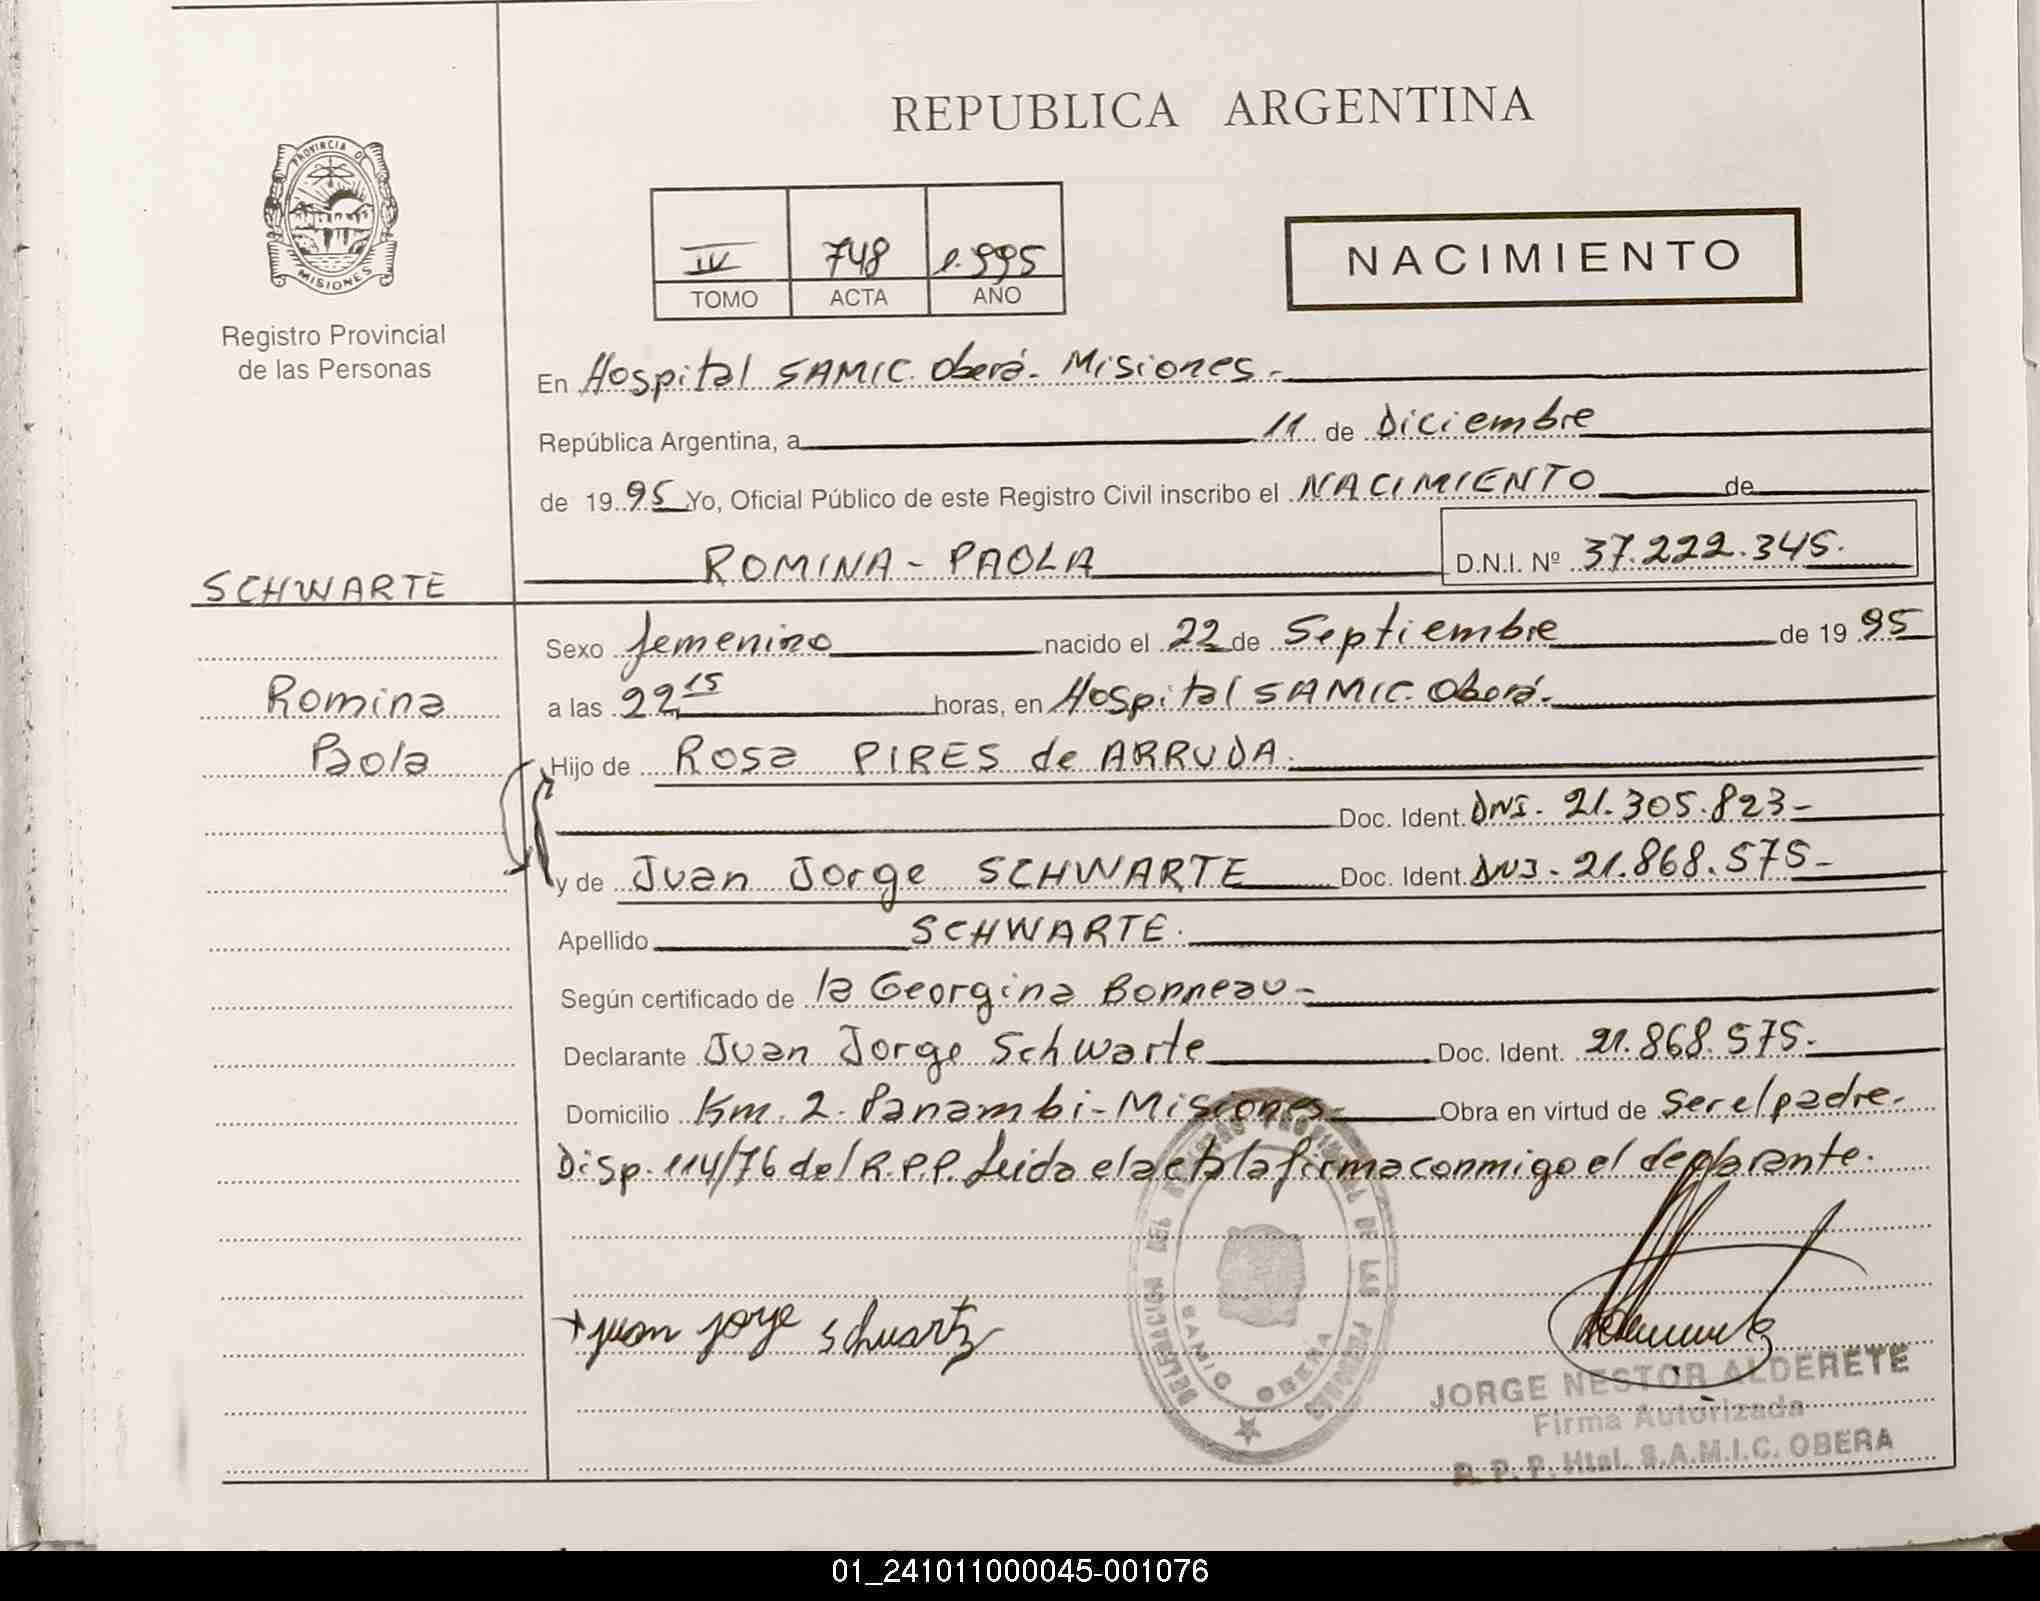 REPUBLICA ARGENTINA
PROVINCIA DE
MISIONES
Registro Provincial
de las Personas
IV 748 1.995
TOMO ACTA AÑO
NACIMIENTO
En Hospital SAMIC. Oberá - Misiones.-
República Argentina, a 11 de Diciembre
de 19 95 Yo, Oficial Público de este Registro Civil inscribo el NACIMIENTO de
ROMINA - PAOLA D.N.I. Nº 37.222.345.
SCHWARTE
Romina
Paola
Sexo femenino nacido el 22 de Septiembre de 19 95
a las 22 15 horas, en Hospital SAMIC. Oberá.
Hijo de Rosa PIRES de ARRUDA.
Doc. Ident. DNI. 21.305.823-
y de Juan Jorge SCHWARTE Doc. Ident. DNI. 21.868.575-
Apellido SCHWARTE.
Según certificado de la Georgina Bonneau-
Declarante Juan Jorge Schwarte Doc. Ident. 21.868.575.
Domicilio Km. 2. Panambi - Misiones - Obra en virtud de ser el padre.
Disp. 114/76 del R.P.P. Leida el acta la firma conmigo el declarante.
DELEGACION DEL REGISTRO PROVINCIAL DE LAS PERSONAS
SAMIC OBERA
juan jorge schuartz
JORGE NESTOR ALDERETE
Firma Autorizada
R. P. P. Htal. S.A.M.I.C. OBERA
01_241011000045-001076